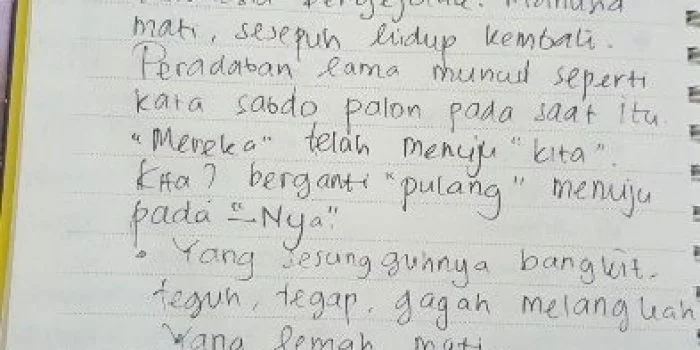 Manusia
mati, sesepuh hidup kembali.
Peradaban lama muncul seperti
kata sabdo palon pada saat itu.
"Mereka" telah menuju "kita".
Kita? berganti "pulang" menuju
pada "-Nya".
• Yang sesungguhnya bangkit.
teguh, tegap, gagah melangkah
Yang lemah mati